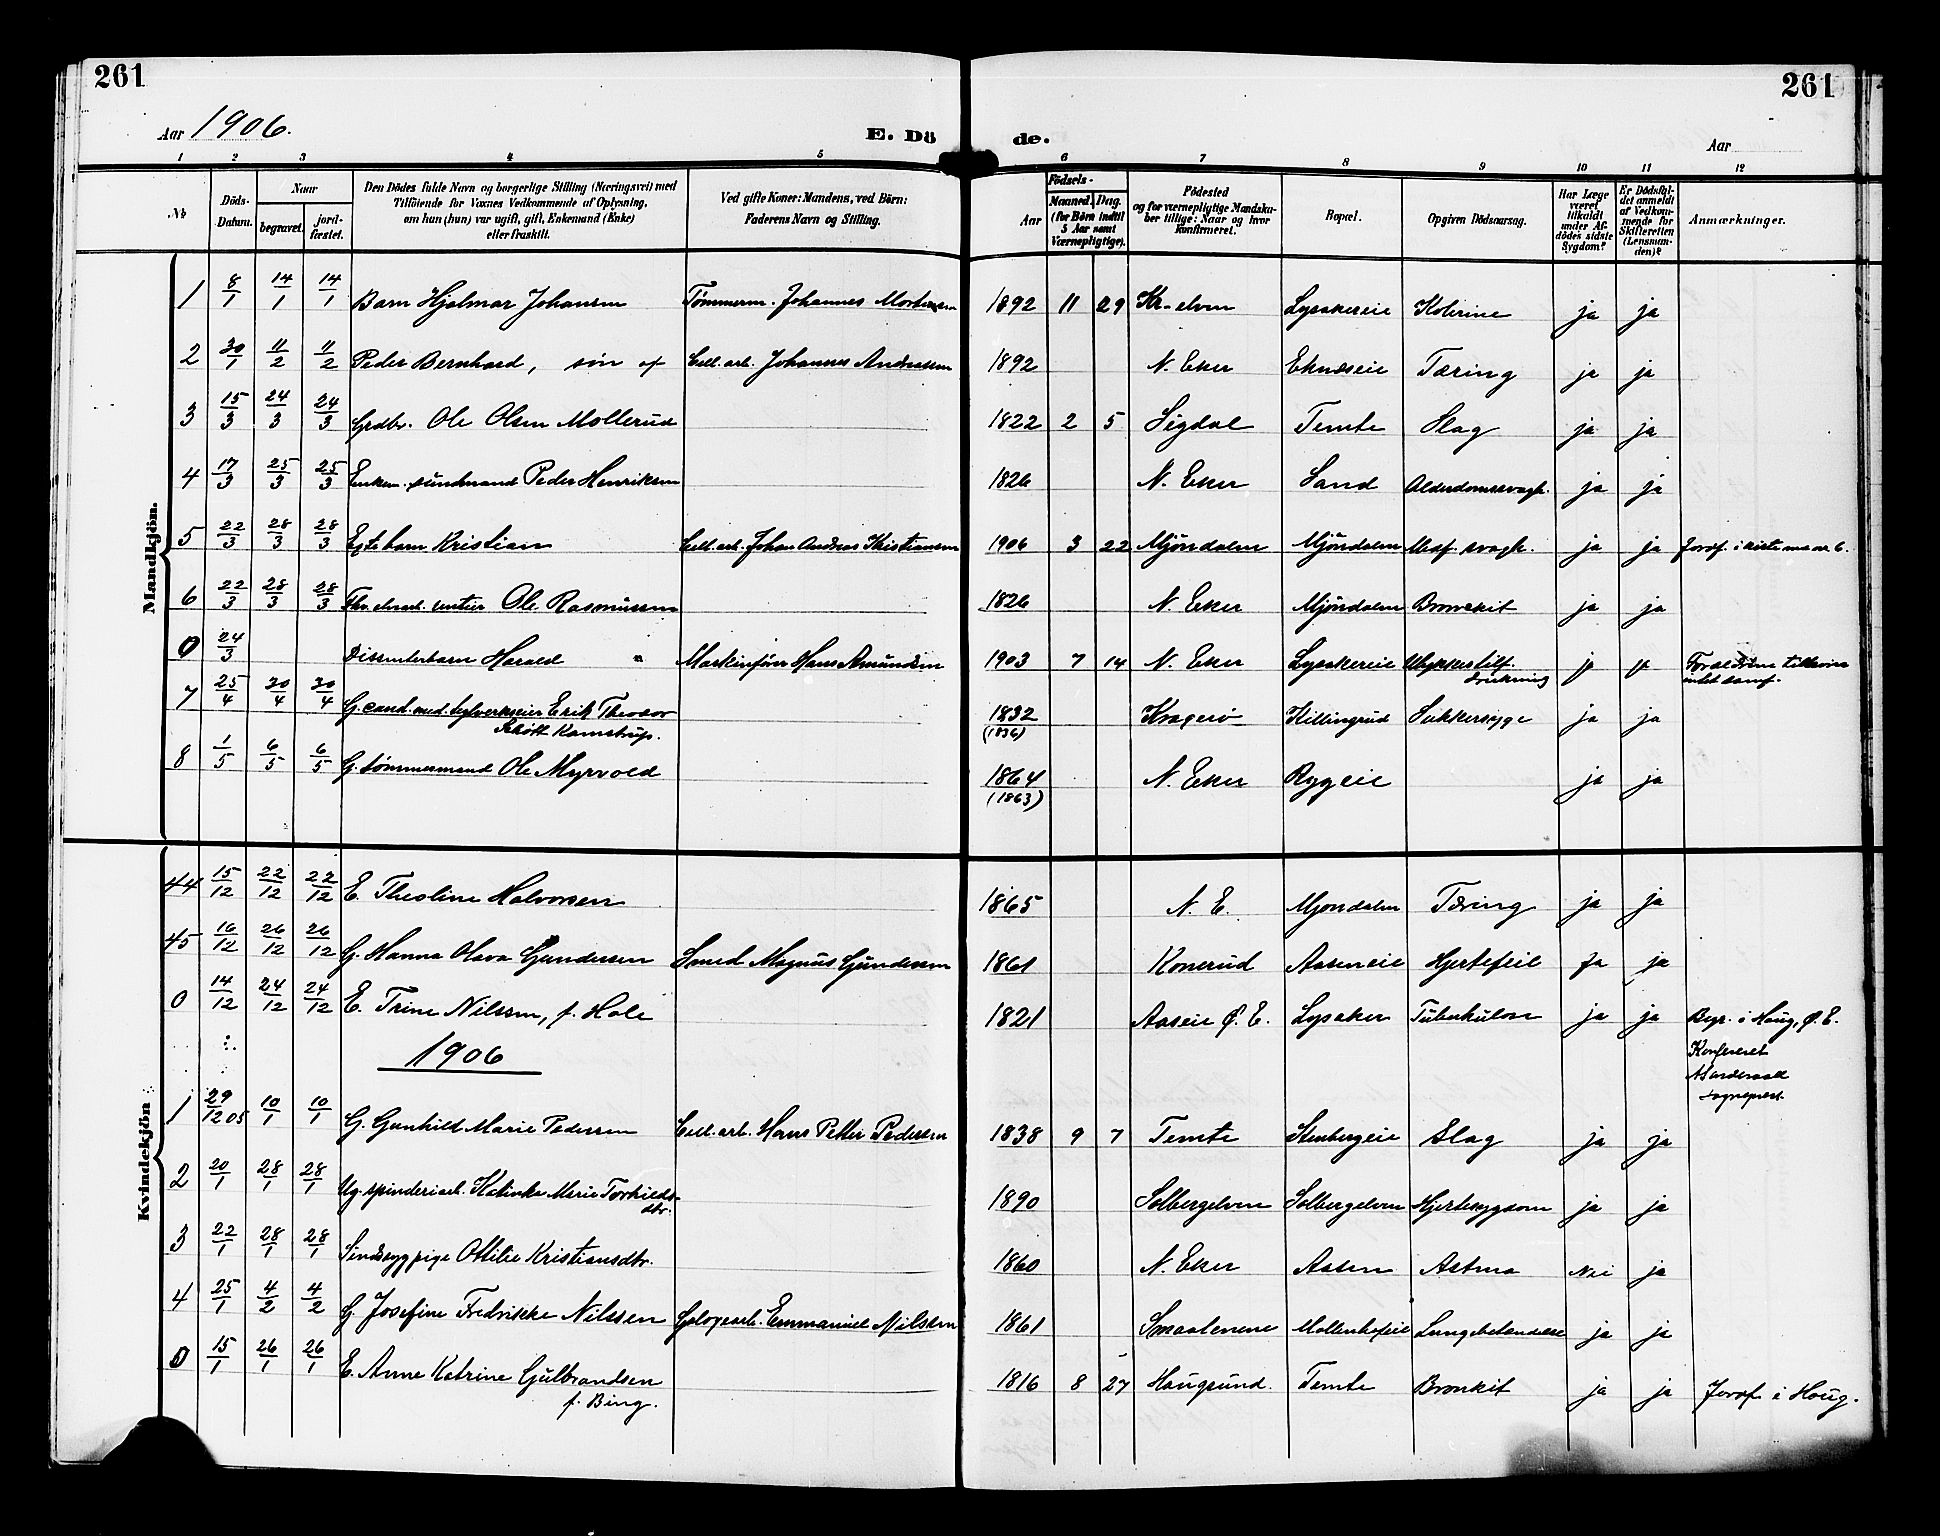 261
261
Aar 1906.
E. Dö
de.
Aar
1 2 3 4 5 6 7 8 9 10 11 12
No
Döds-Datum.
Naar
begravet.
jord-fæstet.
Den Dödes fulde Navn og borgerlige Stilling (Næringsvei) med Tilföiende for Voxnes Vedkommende af Oplysning, om han (hun) var ugift, gift, Enkemand (Enke) eller fraskilt.
Ved gifte Koner: Mandens, ved Börn: Faderens Navn og Stilling.
Födsels-
Aar
Maaned. Dag. (for Börn indtil 5 Aar samt Værnepligtige).
Födested og for værnepligtige Mandskaber tillige: Naar og hvor konfirmeret.
Bopæl.
Opgiven Dödsaarsag.
Har Læge været tilkaldt under Afdödes sidste Sygdom?
Er Dödsfaldet anmeldt af Vedkommende for Skifteretten (Lensmanden)?
Anmærkninger.
Mandkjön.
1 8/1 14/1 14/1 Barn Hjalmar Johansen Tømmerm. Johannes Mortensen 1892 11 29 Kr-elven Lysakereie Kolerine ja ja
2 30/1 11/2 11/2 Peder Bernhard, søn af Cell. arb. Johannes Andreassen 1892 N. Eker Eknæseie Tæring ja ja
3 15/3 24/3 24/3 Grdbr. Ole Olsen Møllerud 1822 2 5 Sigdal Temte Slag ja ja
4 17/3 25/3 25/3 Enkem. sundmand Peder Henriksen 1826 N. Eker Sand Alderdomssvagh. ja ja
5 22/3 28/3 28/3 Egte barn Kristian Cell. arb. Johan Andreas Kristiansen 1906 3 22 Mjøndalen Mjøndalen Medf. svagh. ja ja Jordf. i kiste m. nr. 6.
6 22/3 28/3 28/3 Ole Rasmussen 1826 N. Eker Mjøndalen Bronkit ja ja
0 24/3 Dissenterbarn Harald " Maskinfører Hans Amundsen 1903 7 14 N. Eker Lysakereie Ulykkestilf. Drukning ja ja Forældrene tilhører intet samf.
7 25/4 30/4 30/4 G. cand. med. Erik Theodor
Schøtt Kamstrup. 1832 (1836) Kragerø Killingrud Sukkersyge ja ja
8 1/5 6/5 6/5 G. tømmermand Ole Myrvold 1864 (1863) N. Eker Ryggeie ja ja
Kvindekjön
44 15/12 22/12 22/12 E. Theoline Halvorsen 1865 N. E. Mjøndalen Tæring ja ja
45 16/12 26/12 26/12 G. Hanna Olava Gundersen Smed Magnus Gundersen 1861 Konerud Aaseneie Hjertefeil Ja ja
0 14/12 24/12 24/12 E. Trine Nilssen, f. Hole 1821 Aaseie Ø. E. Lysaker Tuberkulose ja ja Begr. i Haug, Ø. E.
Konfereret
sogneprest
1906
1 29/12 05 10/1 10/1 G. Gunhild Marie Pedersen Cell. arb. Hans Petter Pedersen 1838 9 7 Temte Stenbergeie Slag ja ja
2 20/1 28/1 28/1 Ug. spinderiarb. Katinka Marie Torkilds-
dtr. 1890 Solbergelven Solbergelven Hjertesygdom ja ja
3 22/1 28/1 28/1 Sindssyg pige Ottilie Kristiansdtr. 1860 N. Eker Aasen Astma Nei ja
4 25/1 4/2 4/2 G. Josefine Fredrikke Nilssen Emmanuel Nilssen 1861 Smaalenene Møllenhofeie Lungebetændelse ja ja
0 15/1 26/1 26/1 E. Anne Katrine Gulbrandsen
f. Bing. 1816 8 27 Haugsund. Temte Bronkit ja ja Jordf. i Haug.